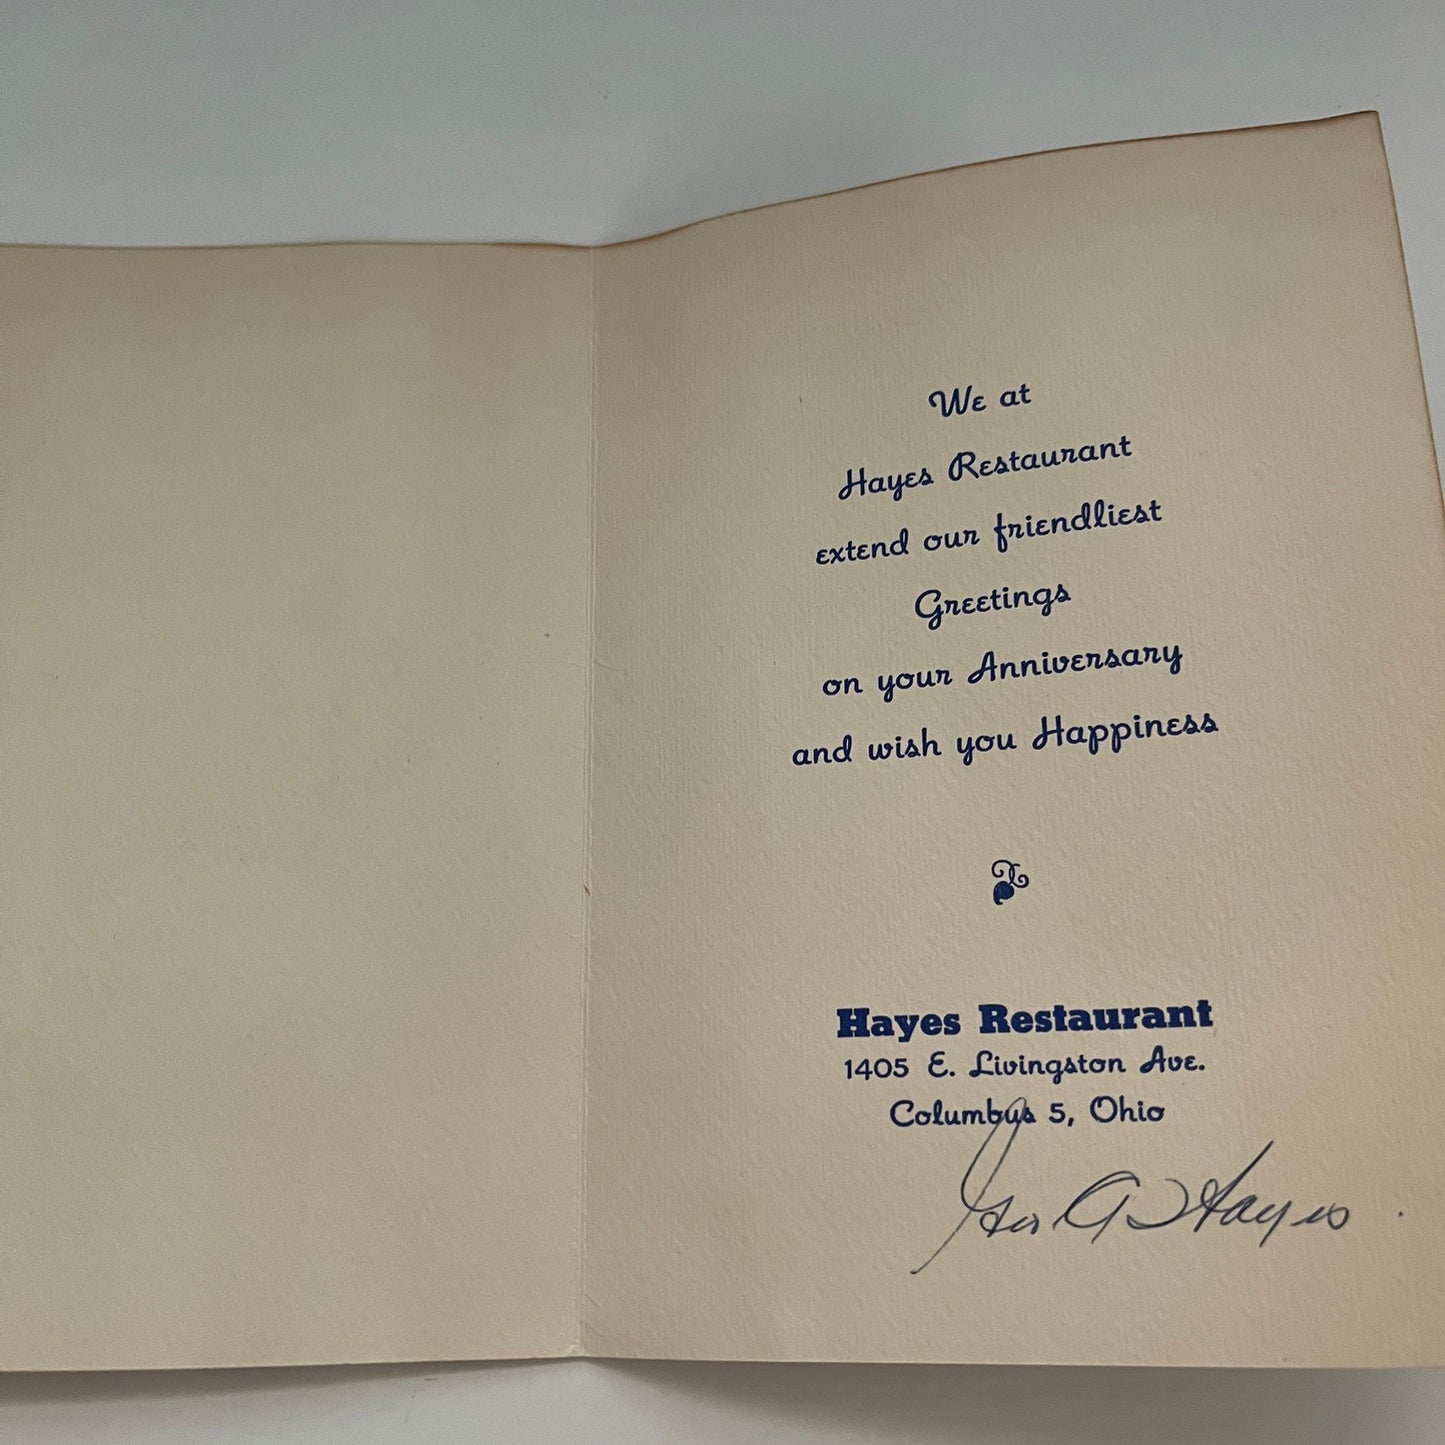 We at
Hayes Restaurant
extend our friendliest
Greetings
on your Anniversary
and wish you Happiness
Hayes Restaurant
1405 E. Livingston Ave.
Columbus 5, Ohio
Geo. A. Hayes